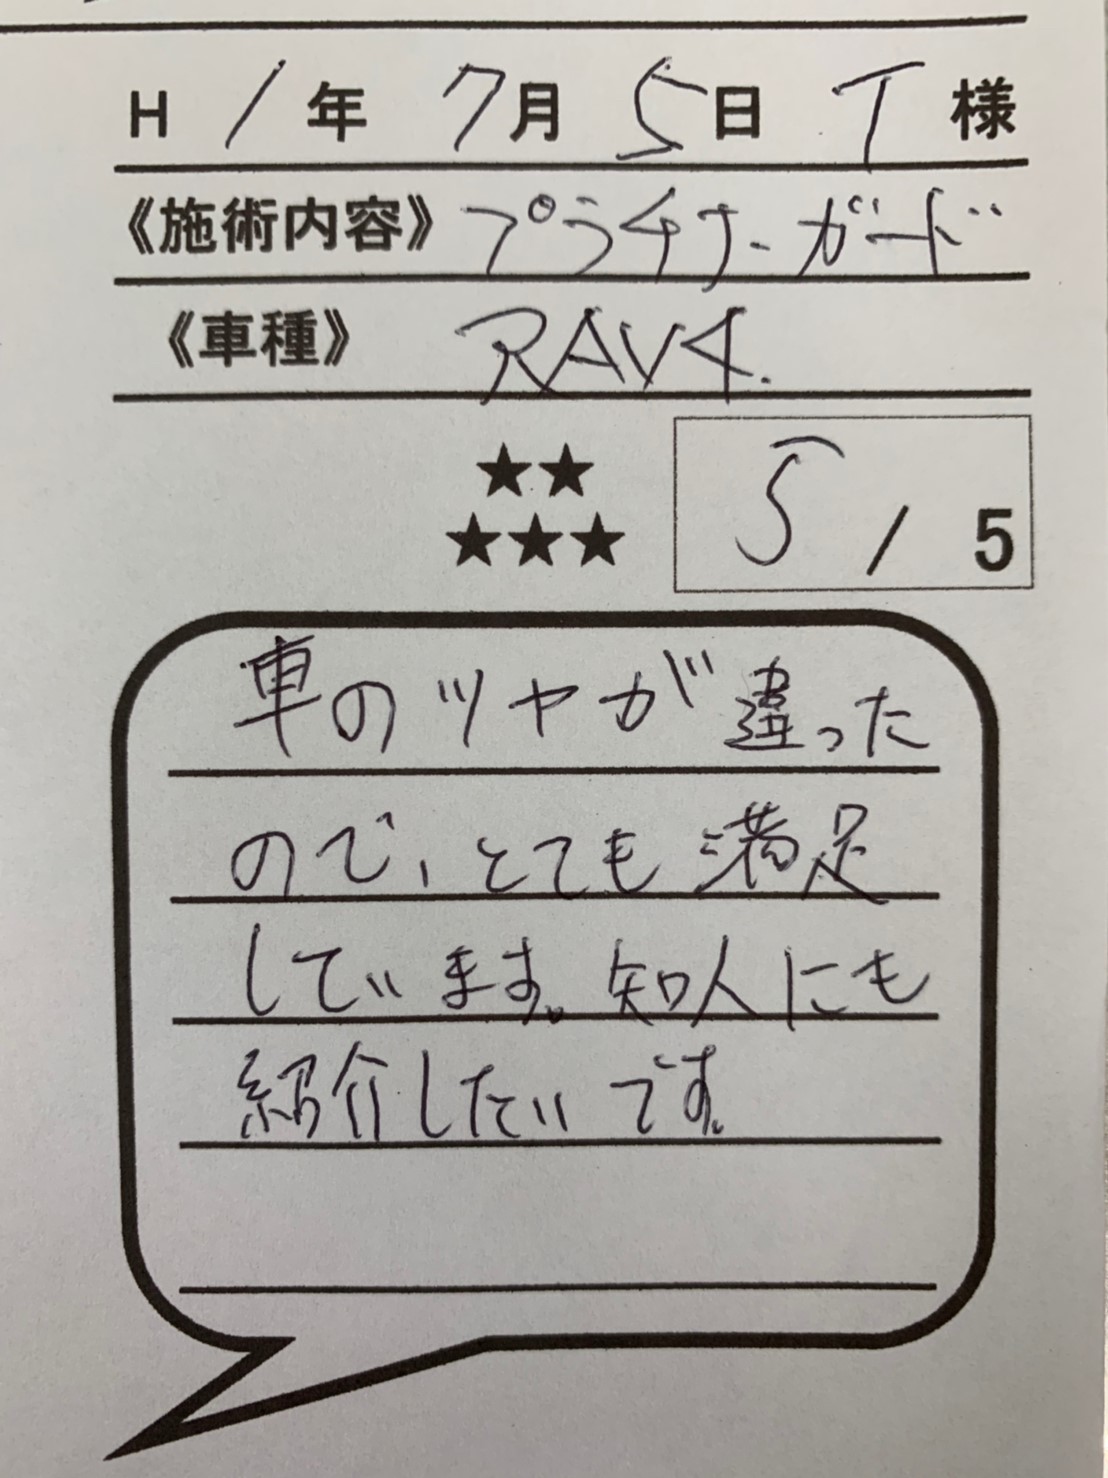 H 1年 7月 5日 T 様
《施術内容》 プラチナ-ガード
《車種》 RAV4.
★★
★★★
5 / 5
車のツヤが違った
ので、とても満足
しています。知人にも
紹介したいです。